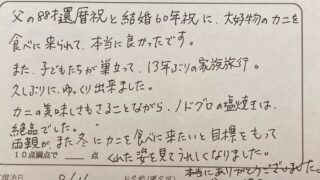 父の88才還暦祝と結婚60年祝に、大好物のカニを
食べに来られて、本当に良かったです。
また、子どもたちが巣立って、13年ぶりの家族旅行。
久しぶりに、ゆっくり出来ました。
カニの美味しさもさることながら、ノドグロの塩焼きは、
絶品でした。
両親が、また冬にカニを食べに来たいと目標をもって
10点満点で　　点
くれた姿を見てうれしくなりました。
本当にありがとうございました。